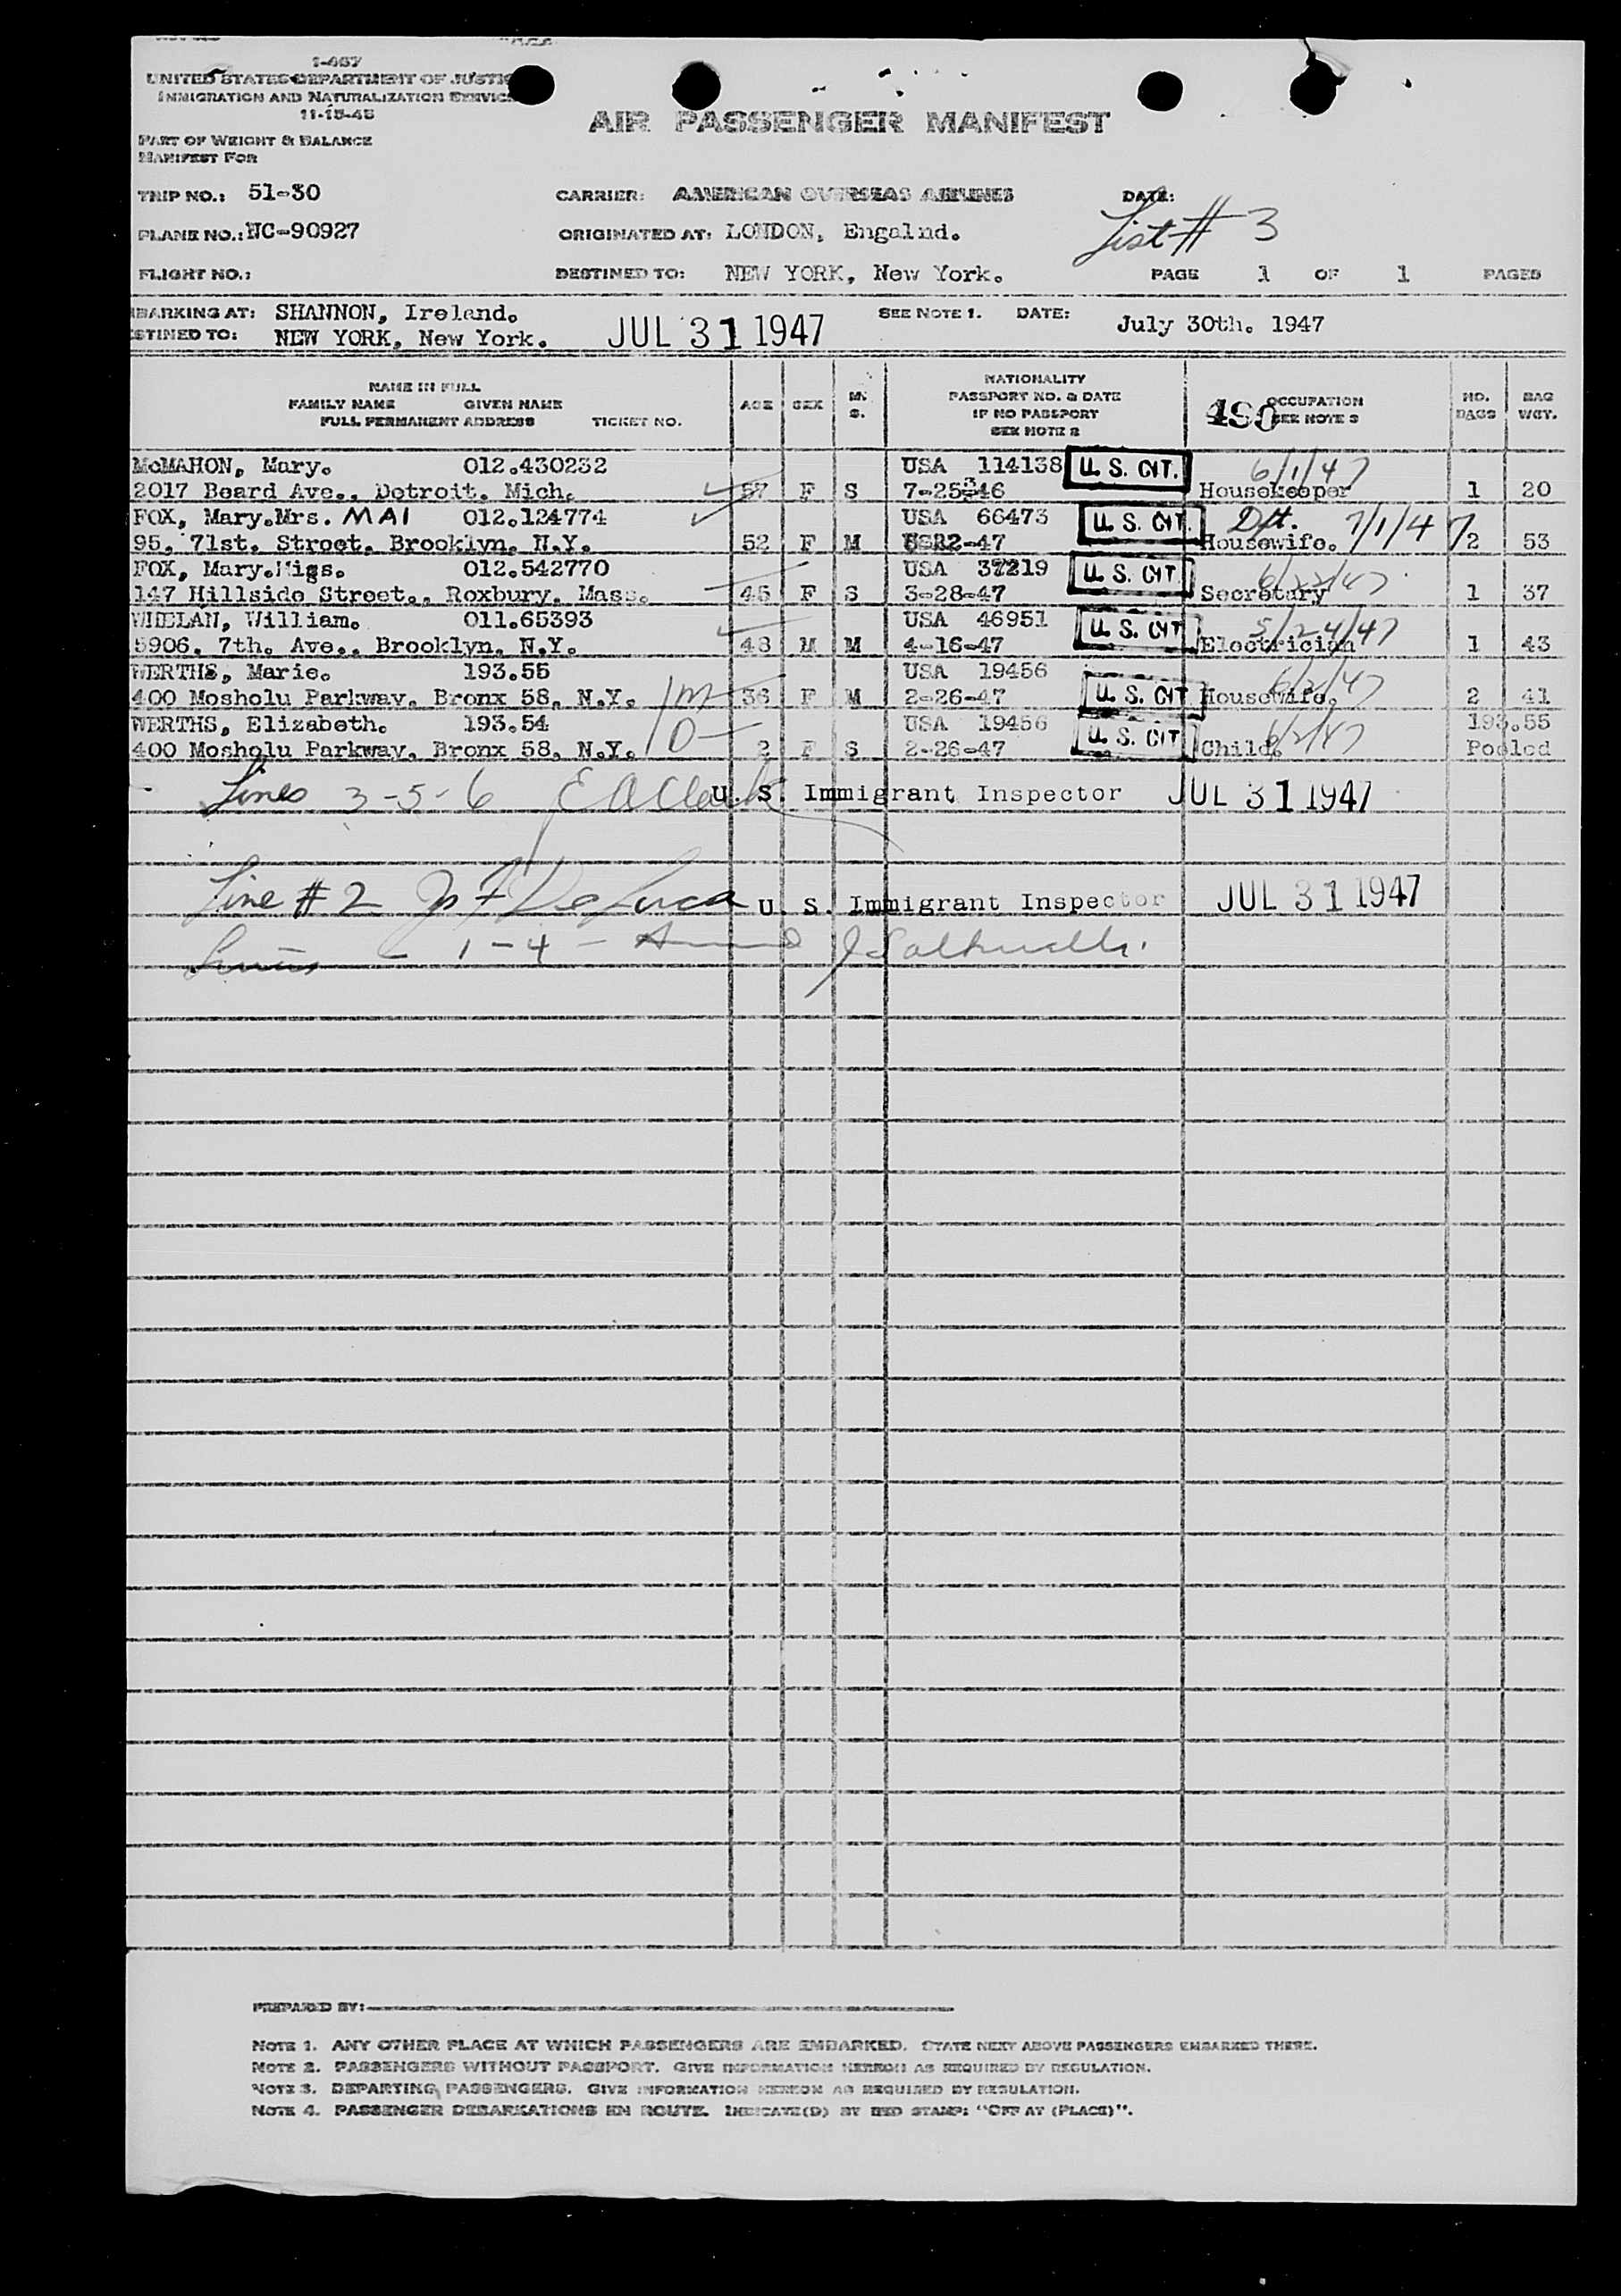 1-467
UNITED STATES DEPARTMENT OF JUSTIC
IMMIGRATION AND NATURALIZATION SERVICE
11-15-45
AIR PASSENGER MANIFEST
PART OF WEIGHT & BALANCE
MANIFEST FOR
TRIP NO.: 51-30 CARRIER: AMERICAN OVERSEAS AIRLINES DATE:
List # 3
PLANE NO.: NC-90927 ORIGINATED AT: LONDON, Engalnd.
FLIGHT NO.: DESTINED TO: NEW YORK, New York. PAGE 1 OF 1 PAGES
BARKING AT: SHANNON, Ireland. SEE NOTE 1. DATE: July 30th. 1947
STINED TO: NEW YORK, New York. JUL 31 1947
NAME IN FULL
FAMILY NAME GIVEN NAME
FULL PERMANENT ADDRESS TICKET NO.
AGE SEX M. S.
NATIONALITY
PASSPORT NO. & DATE
IF NO PASSPORT
SEE NOTE 2
490 OCCUPATION
SEE NOTE 3
NO. BAGS
BAG WGT.
McMAHON, Mary. 012.430232 USA 114138 U. S. CIT. 6/1/47
2017 Beard Ave., Detroit. Mich. 57 F S 7-25-46 Housekeeper 1 20
FOX, Mary.Mrs. MAI 012.124774 USA 66473 U. S. CIT. Dpt. 7/1/47
95, 71st. Street, Brooklyn. N.Y. 52 F M Housewife. 2 53
FOX, Mary.Migs. 012.542770 USA 37219 U. S. CIT. 6/22/47
147 Hillside Street., Roxbury. Mass. 45 F S 3-28-47 Secretary 1 37
WHELAN, William. 011.65393 USA 46951 U. S. CIT 5/24/47
5906. 7th. Ave., Brooklyn. N.Y. 48 M M 4-16-47 Electrician 1 43
WERTHS, Marie. 193.55 USA 19456 6/2/47
400 Mosholu Parkway. Bronx 58. N.Y. 1m 36 F M 2-26-47 U. S. CIT Housewife. 2 41
WERTHS, Elizabeth. 193.54 USA 19456 U. S. CIT 6/2/47 193.55
400 Mosholu Parkway. Bronx 58. N.Y. 2 F S 2-26-47 Child. Pooled
Lines 3-5-6 E A Clark U. S. Immigrant Inspector JUL 31 1947
Line # 2 DeLuca U. S. Immigrant Inspector JUL 31 1947
Lines - 1-4 -
PREPARED BY:
NOTE 1. ANY OTHER PLACE AT WHICH PASSENGERS ARE EMBARKED. STATE NEXT ABOVE PASSENGERS EMBARKED THERE.
NOTE 2. PASSENGERS WITHOUT PASSPORT. GIVE INFORMATION HEREON AS REQUIRED BY REGULATION.
NOTE 3. DEPARTING PASSENGERS. GIVE INFORMATION HEREON AS REQUIRED BY REGULATION.
NOTE 4. PASSENGER DEBARKATIONS EN ROUTE. INDICATE(D) BY RED STAMP: "OFF AT (PLACE)".